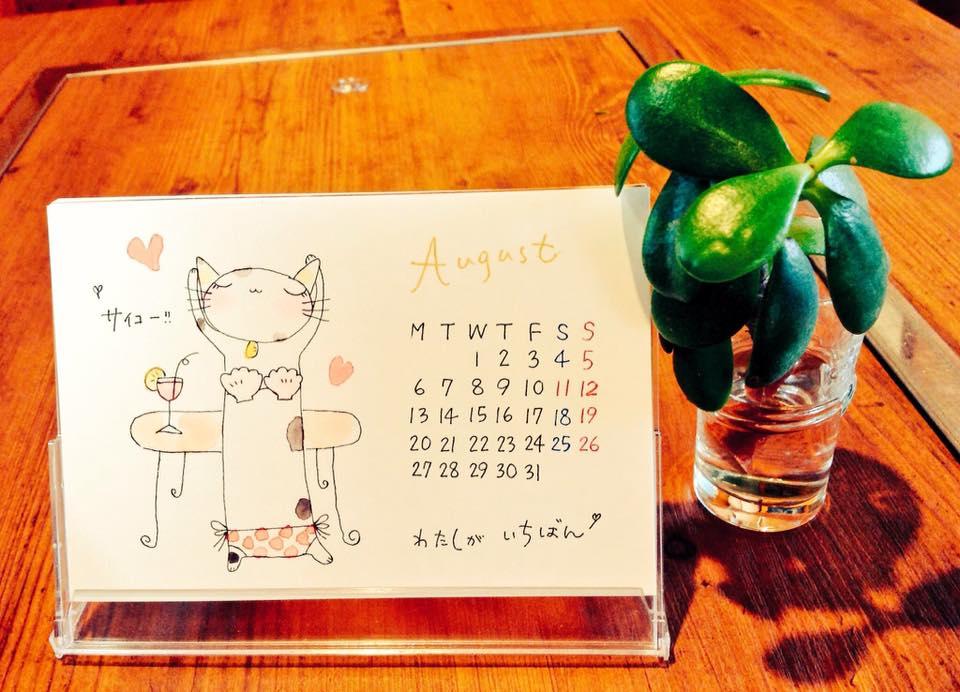 サイコー!!
August
M T W T F S S
1 2 3 4 5
6 7 8 9 10 11 12
13 14 15 16 17 18 19
20 21 22 23 24 25 26
27 28 29 30 31
わたしが いちばん